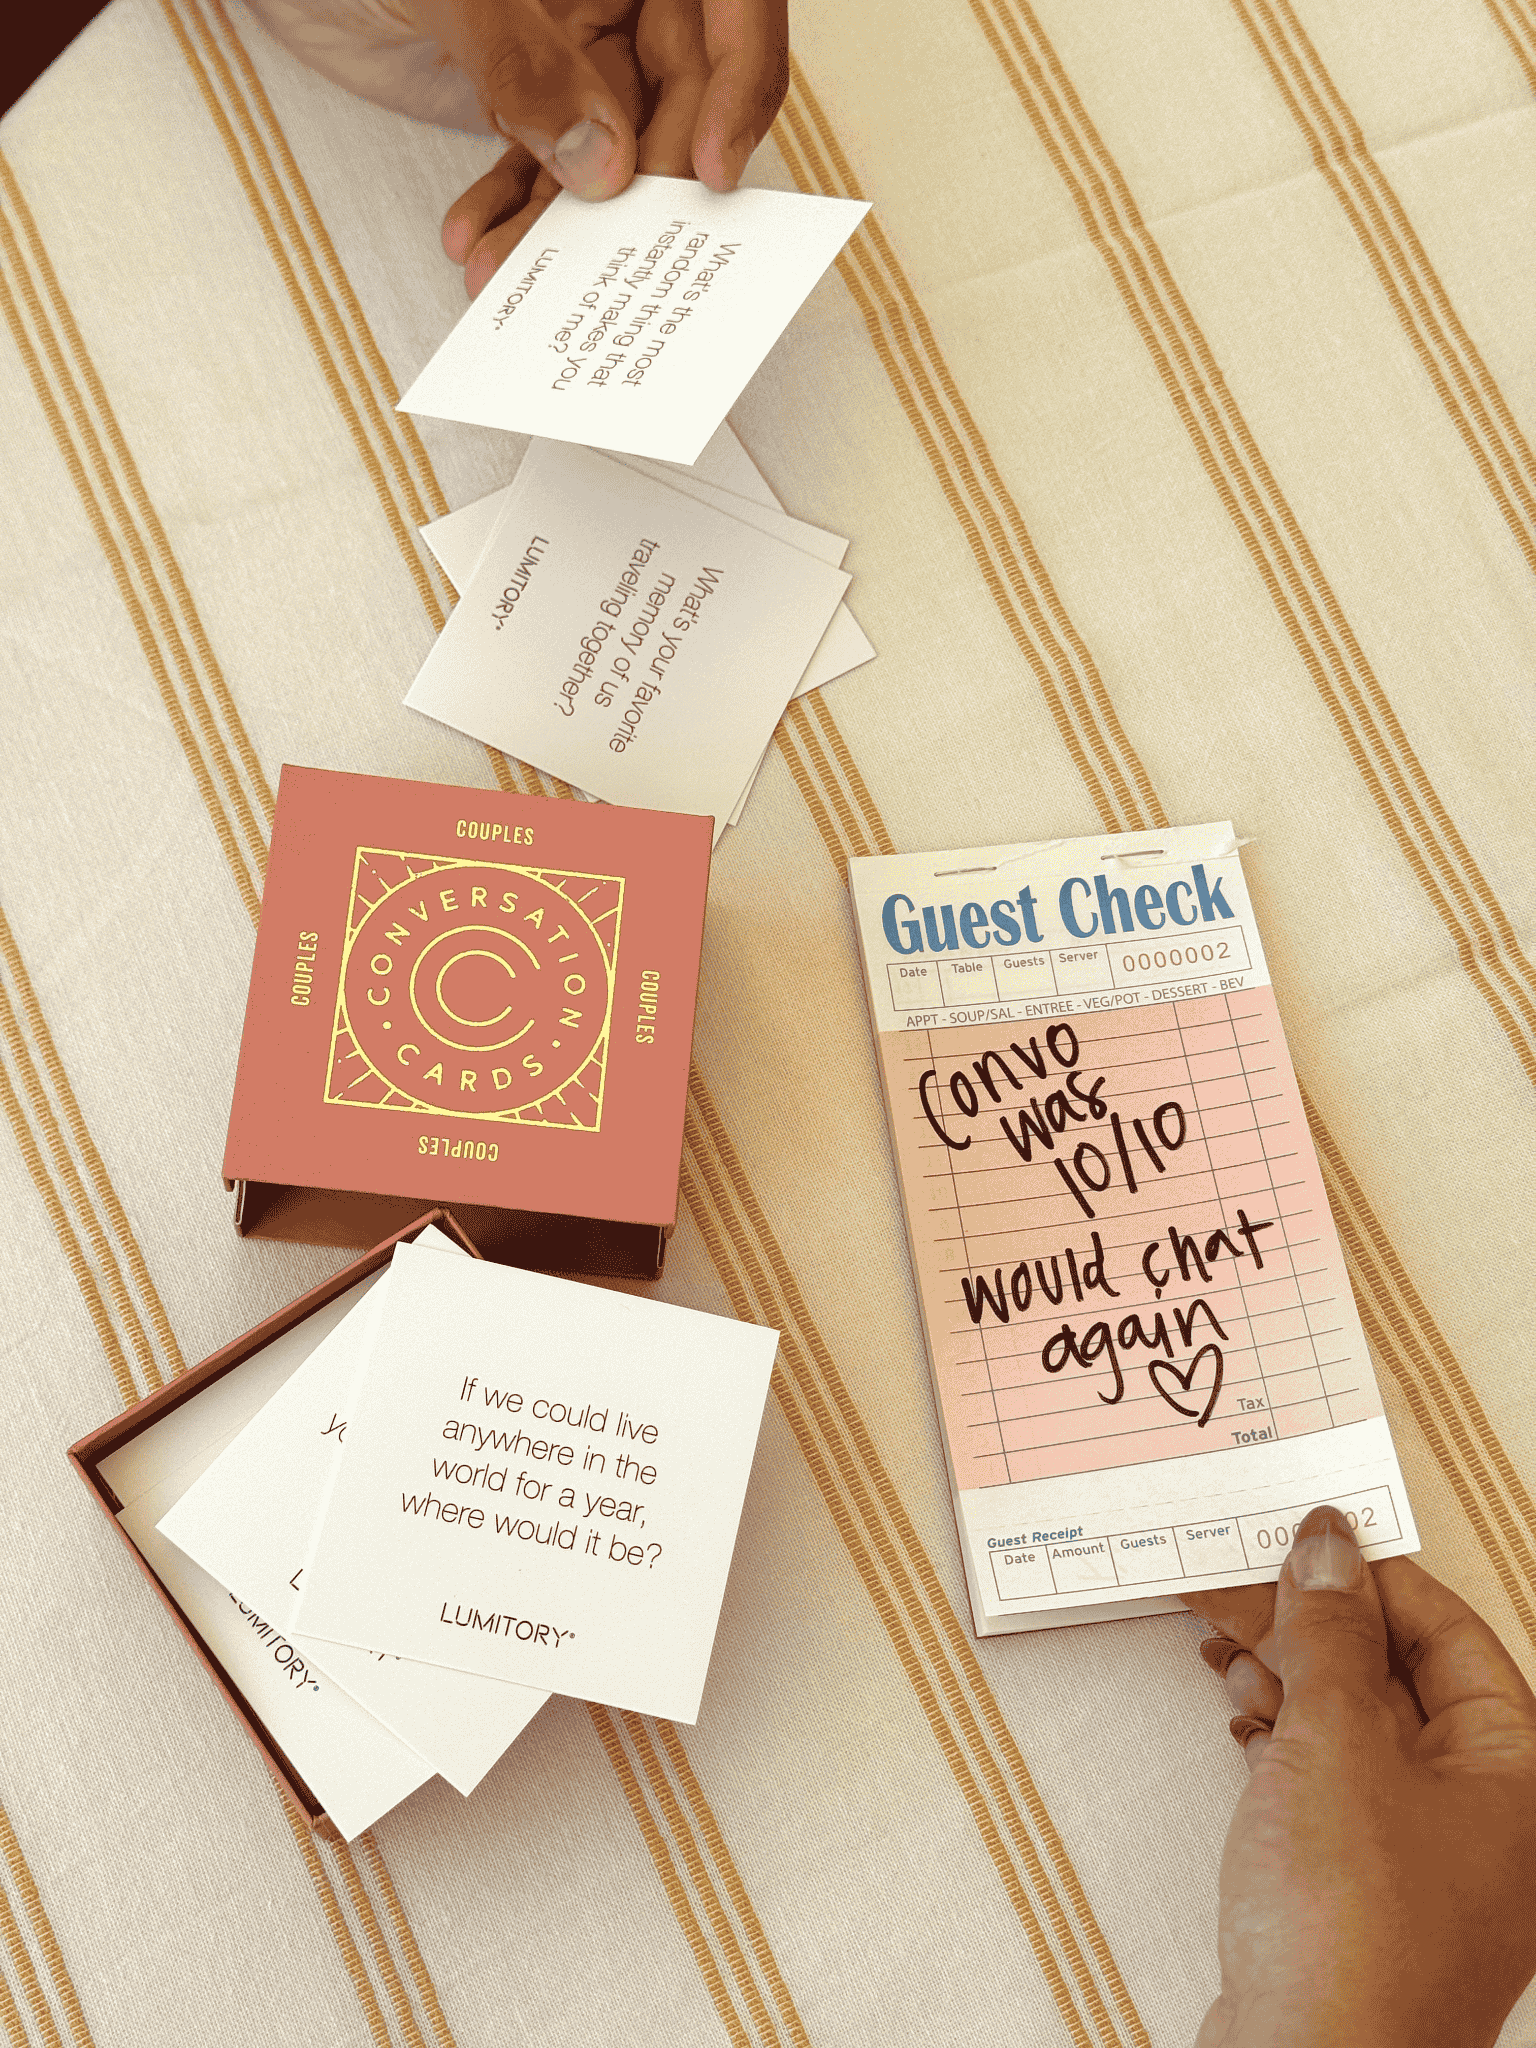 What's the most
random thing that
instantly makes you
think of me?
LUMITORY®
What's your favorite
memory of us
traveling together?
LUMITORY®
COUPLES
COUPLES
COUPLES
COUPLES
CONVERSATION
CARDS
C
If we could live
anywhere in the
world for a year,
where would it be?
LUMITORY®
L
LUMITORY®
Guest Check
Date Table Guests Server 0000002
APPT - SOUP/SAL - ENTREE - VEG/POT - DESSERT - BEV
Convo
was
10/10
would chat
again
Tax
Total
Guest Receipt
Date Amount Guests Server